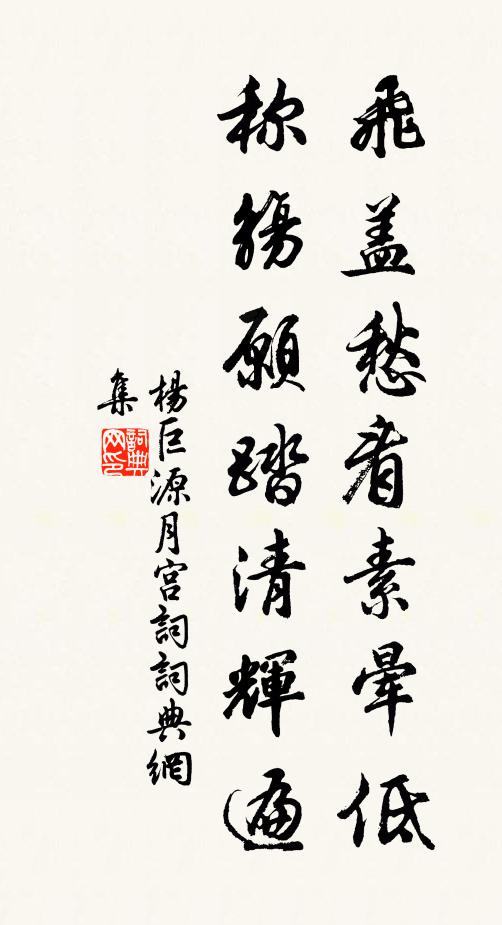 飛盖愁看素暈低
称觴願踏清輝遍
楊巨源月宫詞詞典網
集
詞典
网印